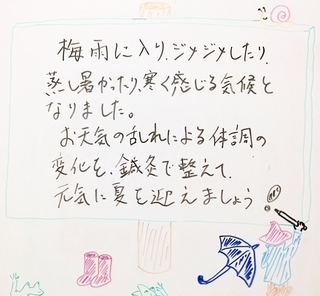 梅雨に入り、ジメジメしたり、
蒸し暑かったり、寒く感じる気候と
なりました。
お天気の乱れによる体調の
変化を、鍼灸で整えて、
元気に夏を迎えましょう